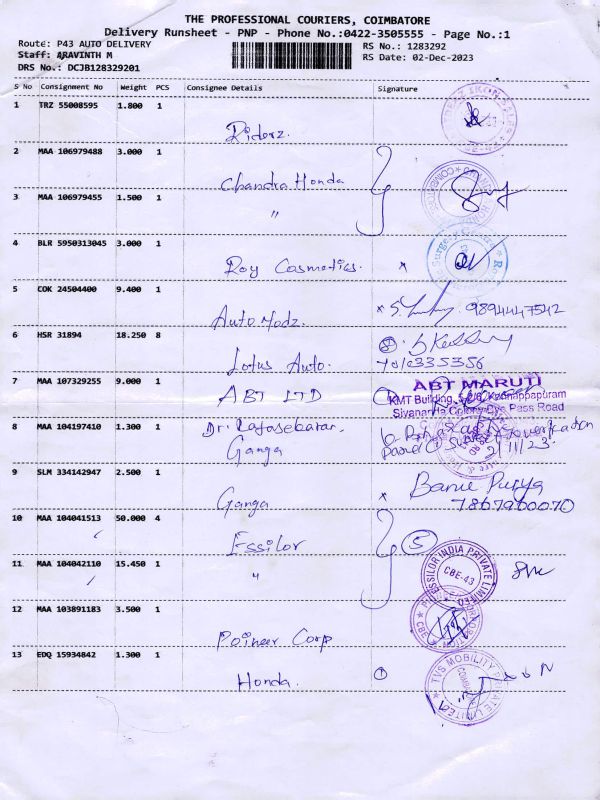 THE PROFESSIONAL COURIERS, COIMBATORE
Delivery Runsheet - PNP - Phone No.:0422-3505555 - Page No.:1
Route: P43 AUTO DELIVERY RS No.: 1283292
Staff: ARAVINTH M RS Date: 02-Dec-2023
DRS No.: DCJB128329201
S No Consignment No Weight PCS Consignee Details Signature
1 TRZ 55008595 1.800 1
Riderz.
2 MAA 106979488 3.000 1
Chandra Honda
3 MAA 106979455 1.500 1
"
4 BLR 5950313045 3.000 1
Roy Cosmetics. x
5 COK 24504400 9.400 1
Auto Modz. x 9894447542
6 HSR 31894 18.250 8
Lotus Auto.
7 MAA 107329255 9.000 1
ABT LTD
ABT MARUTI
KMT Building,
Sivananda Colony Bye Pass Road
8 MAA 104197410 1.300 1
Dr. Rajasekaran,
Ganga
2/11/23
9 SLM 334142947 2.500 1
Ganga x
7867960070
10 MAA 104041513 50.000 4
Essilor 5
11 MAA 104042110 15.450 1
"
ESSILOR INDIA PRIVATE LIMITED
CBE-43
12 MAA 103891183 3.500 1
Poineer Corp
13 EDQ 15934842 1.300 1
Honda. 1
TVS MOBILITY PRIVATE LIMITED